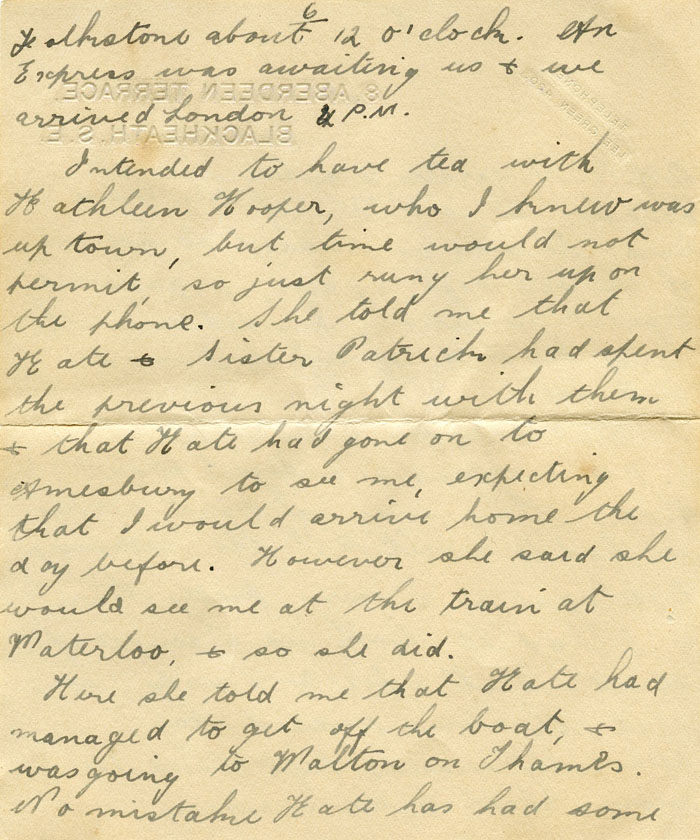 Folkstone about 12 o'clock. An
Express was awaiting us & we
arrived London 4 P.M.
8 ABERDEEN TERRACE.
BLACKHEATH. S.E.
Intended to have tea with
Kathleen Hooper, who I knew was
up town, but time would not
permit, so just rung her up on
the phone. She told me that
Kate & Sister Patrick had spent
the previous night with them
& that Kate had gone on to
Amesbury to see me, expecting
that I would arrive home the
day before. However she said she
would see me at the train at
Waterloo, & so she did.
Here she told me that Kate had
managed to get off the boat, &
was going to Walton on Thames.
No mistake Kate has had some